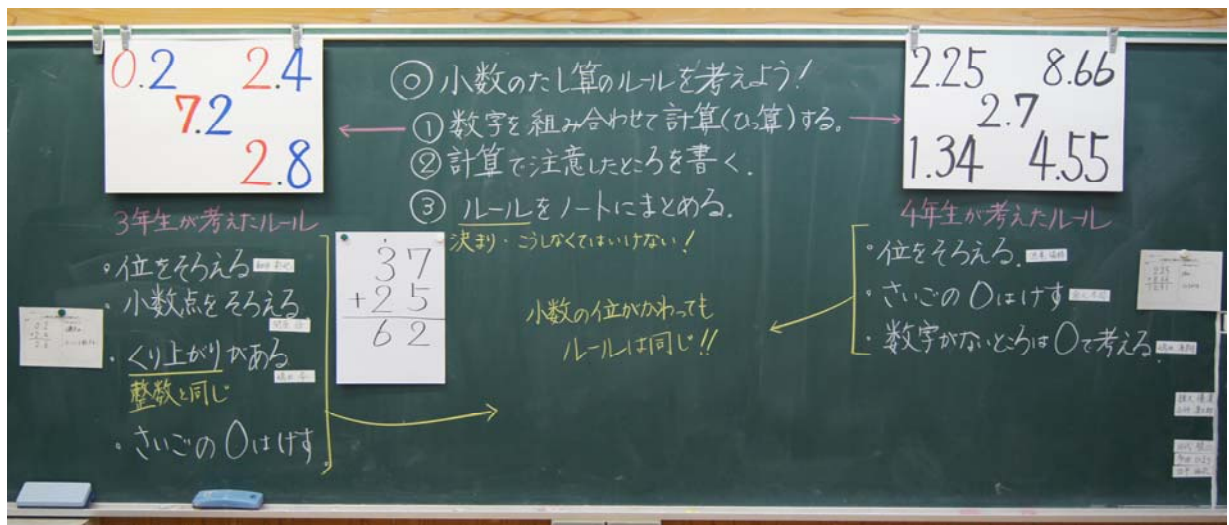 0.2 2.4
7.2
2.8
◎ 小数のたし算のルールを考えよう!
① 数字を組み合わせて計算(ひっ算)する。
② 計算で注意したところを書く.
③ ルールをノートにまとめる.
決まり・こうしなくてはいけない!
2.25 8.66
2.7
1.34 4.55
3年生が考えたルール
・位をそろえる
・小数点をそろえる
・くり上がりがある
整数と同じ
・さいごの0はけす.
37
+25
62
小数の位がかわっても
ルールは同じ!!
4年生が考えたルール
・位をそろえる.
・さいごの0はけす
・数字がないところは0で考える.